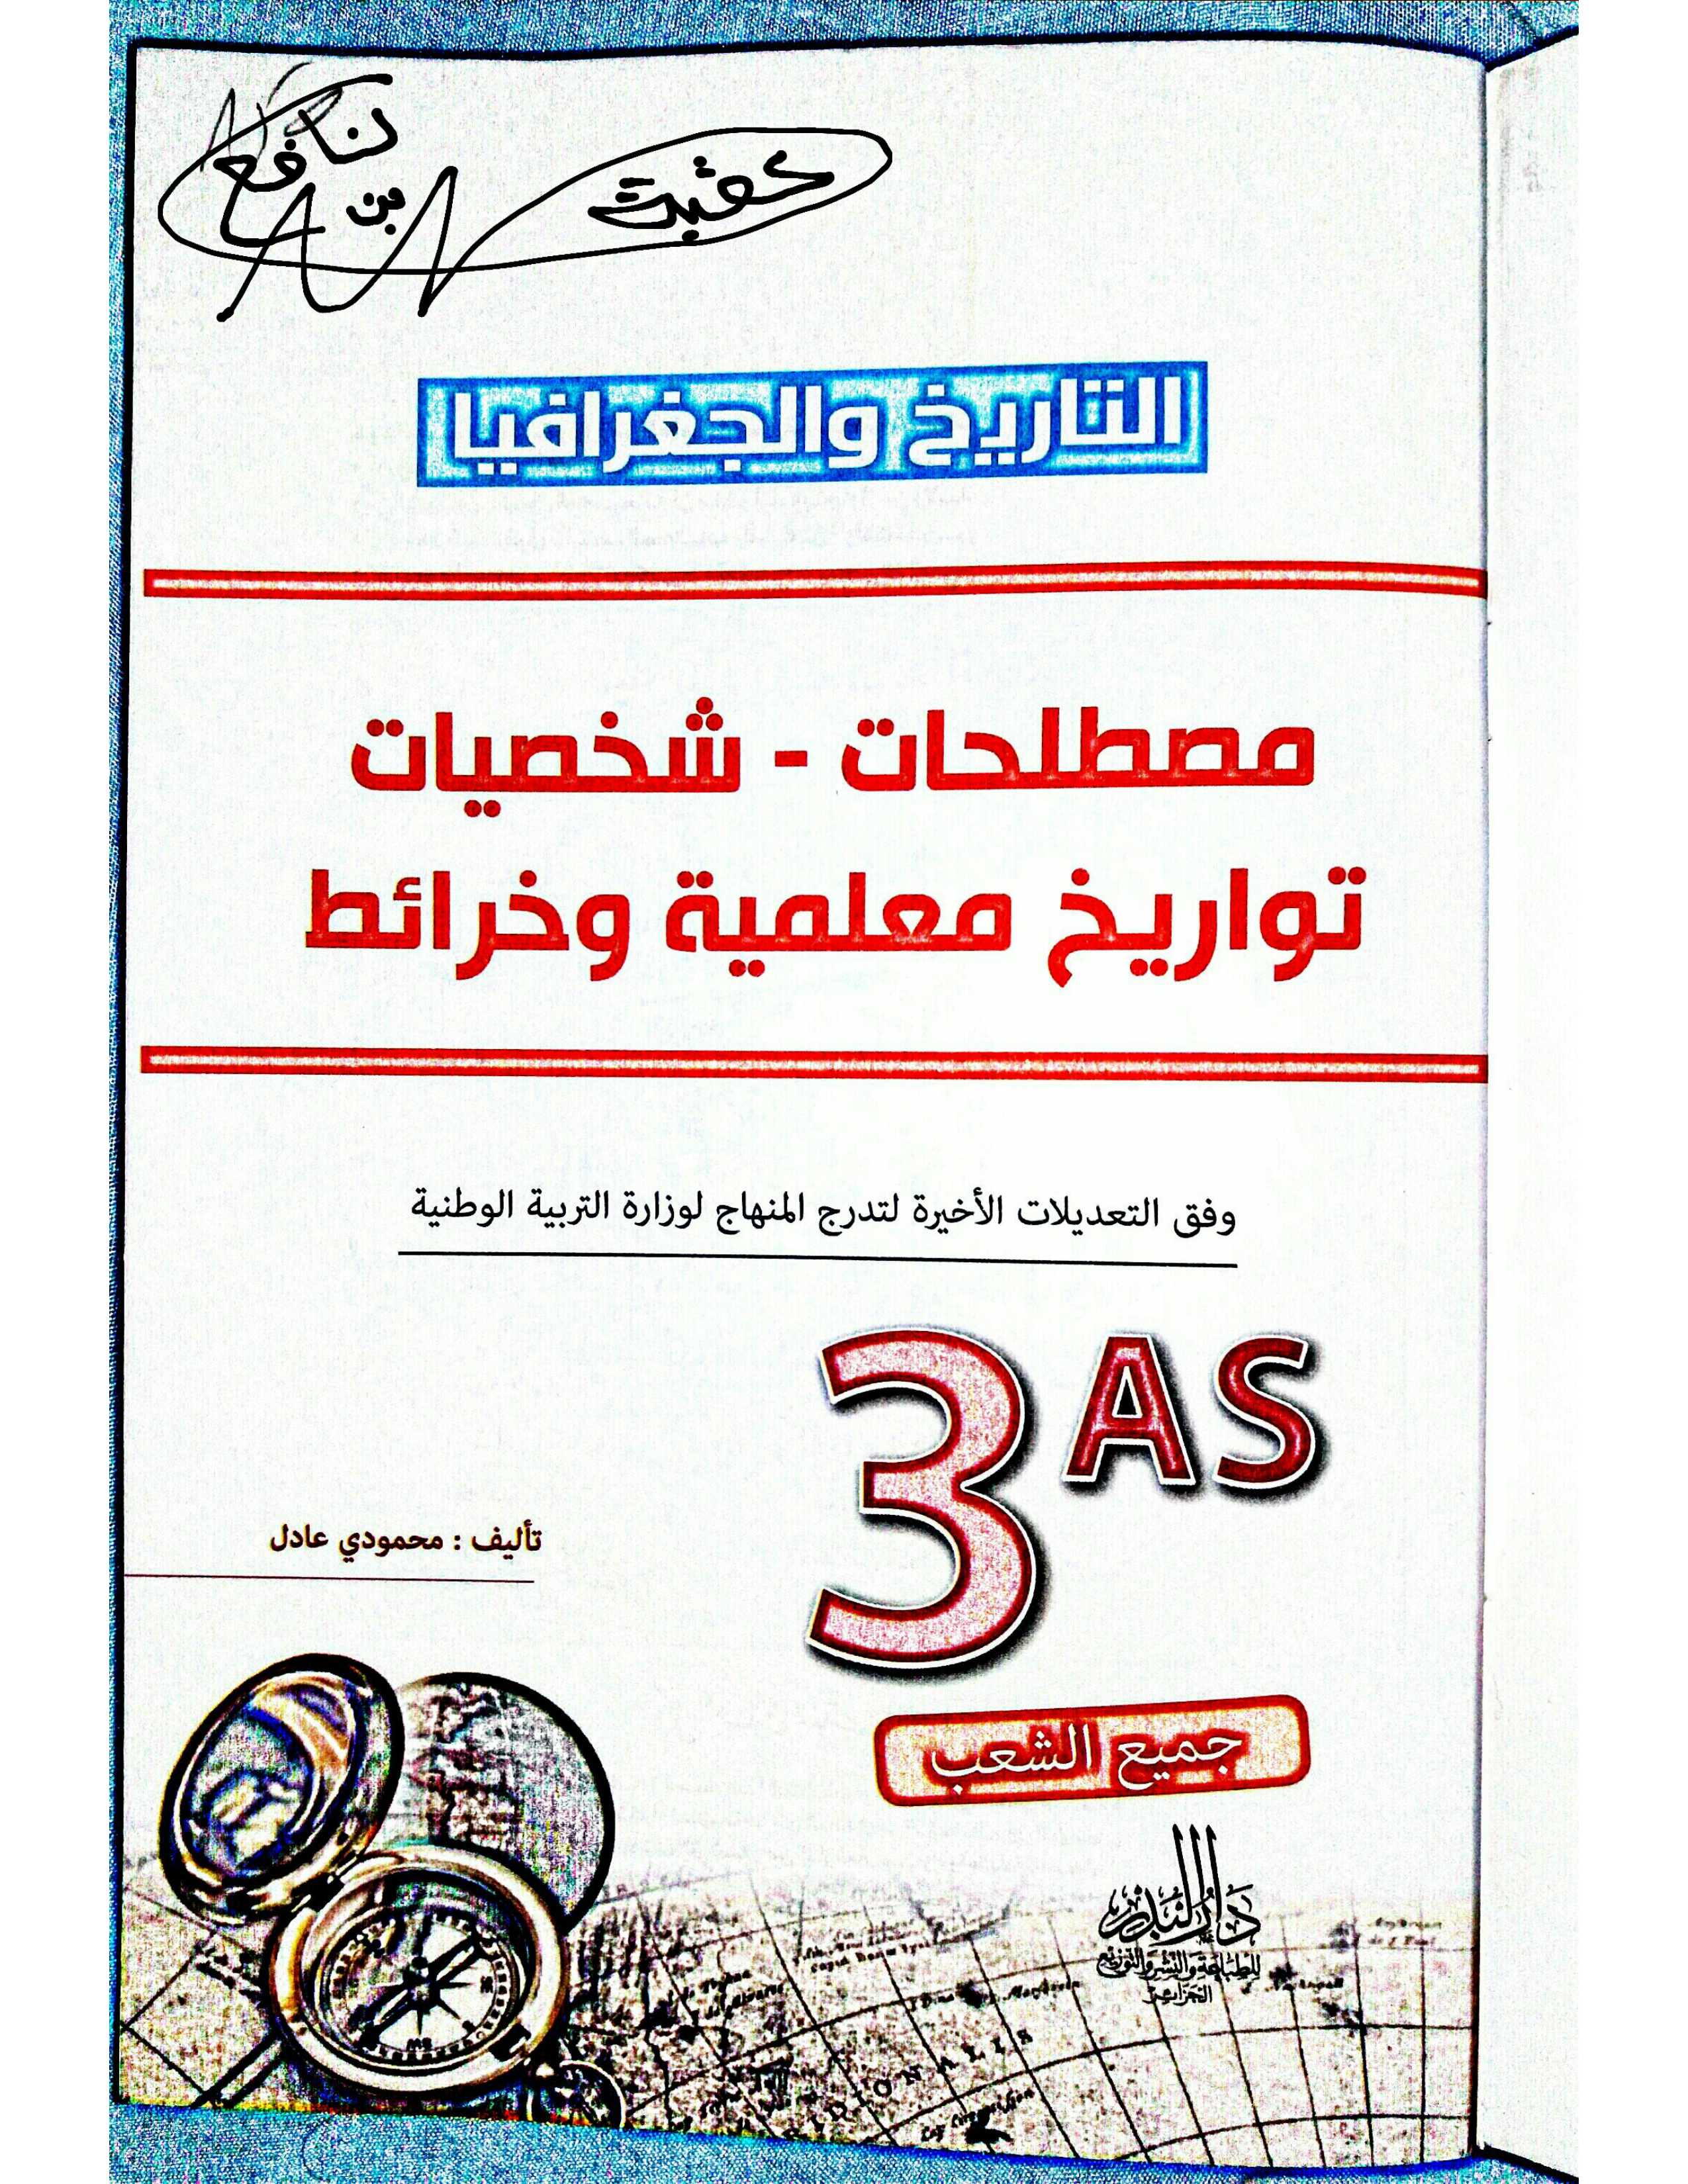 عقبة
بن
نافع
التاريخ والجغرافيا
مصطلحات - شخصيات
تواريخ معلمية وخرائط
وفق التعديلات الأخيرة لتدرج المنهاج لوزارة التربية الوطنية
3AS
تأليف : محمودي عادل
جميع الشعب
دار البدر
للطباعة والنشر والتوزيع
الجزائر